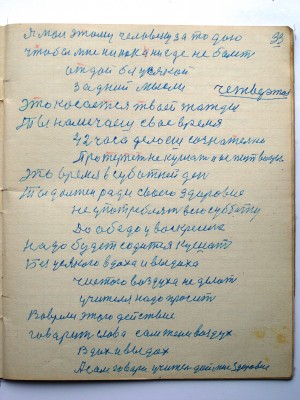 Я мои этому человеку за то даю 33
чтобы мне никокá нигде не балит
отдой бы усякой
задний мысли четведэтоя
Это косается твоей жажды
Ты намечаеш свое время
42 часа делоеш сознательно
Протерпет не кушат и не пит воды
Это время в суботний ден
Ты должен ради своего здоровие
не употреблят всю субатку
До обеда у воскресеня
Надо будет содится кушат
Без усякого вдоха и выдоха
чистого воздуха не делат
учителя надо просит
Вовремя этого действие
говорит слова сам тени воздух
Вдох и выдох
А сам говори учител дай мне здоровие